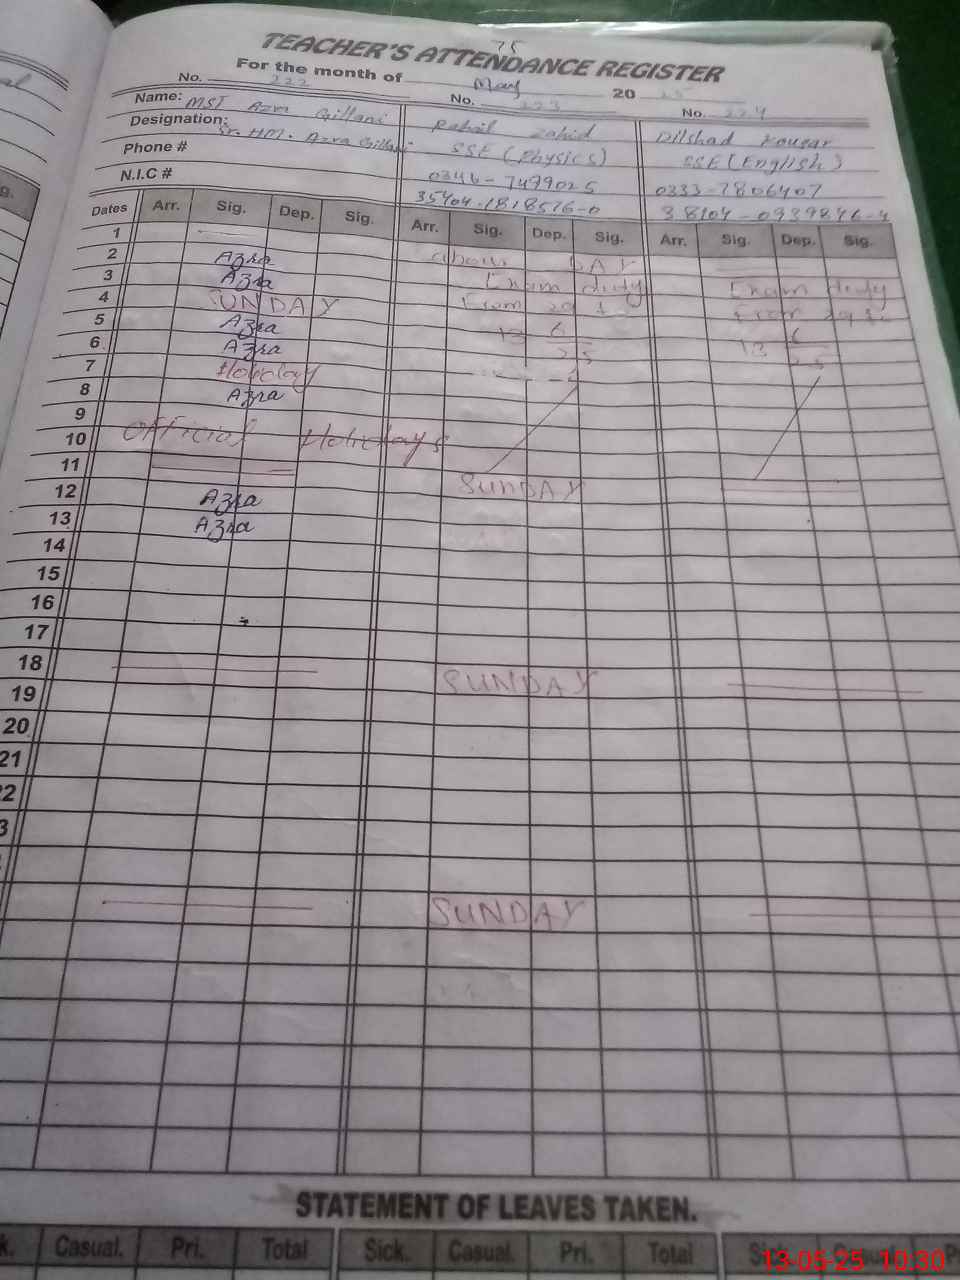 75
TEACHER'S ATTENDANCE REGISTER
For the month of May 20 25
No. 222 No. 223 No. 224
Name: MST Azra Gillani Rahil Zahid Dilshad Kousar
Designation: Sr. HM. Azra Gillani SSE (Physics) SSE (English)
Phone # 0346-7499025 0333-7806407
N.I.C # 35404-1818576-0
Dates Arr. Sig. Dep. Sig. Arr. Sig. Dep. Sig. Arr. Sig. Dep. Sig.
1 DAY
2 Azra Exam duty Exam duty
3 Azra From
4 SUNDAY 13 6 25 13 6 25
5 Azra
6 Azra
7 Holiday
8 Azra
9
10 Official Holidays
11 SUNDAY
12 Azra
13 Azra
14
15
16
17
18 SUNDAY
19
20
21
22
3
SUNDAY
STATEMENT OF LEAVES TAKEN.
k. Casual. Pri. Total Sick. Casual. Pri. Total Sick. Casual. P
13-05-25 10:30